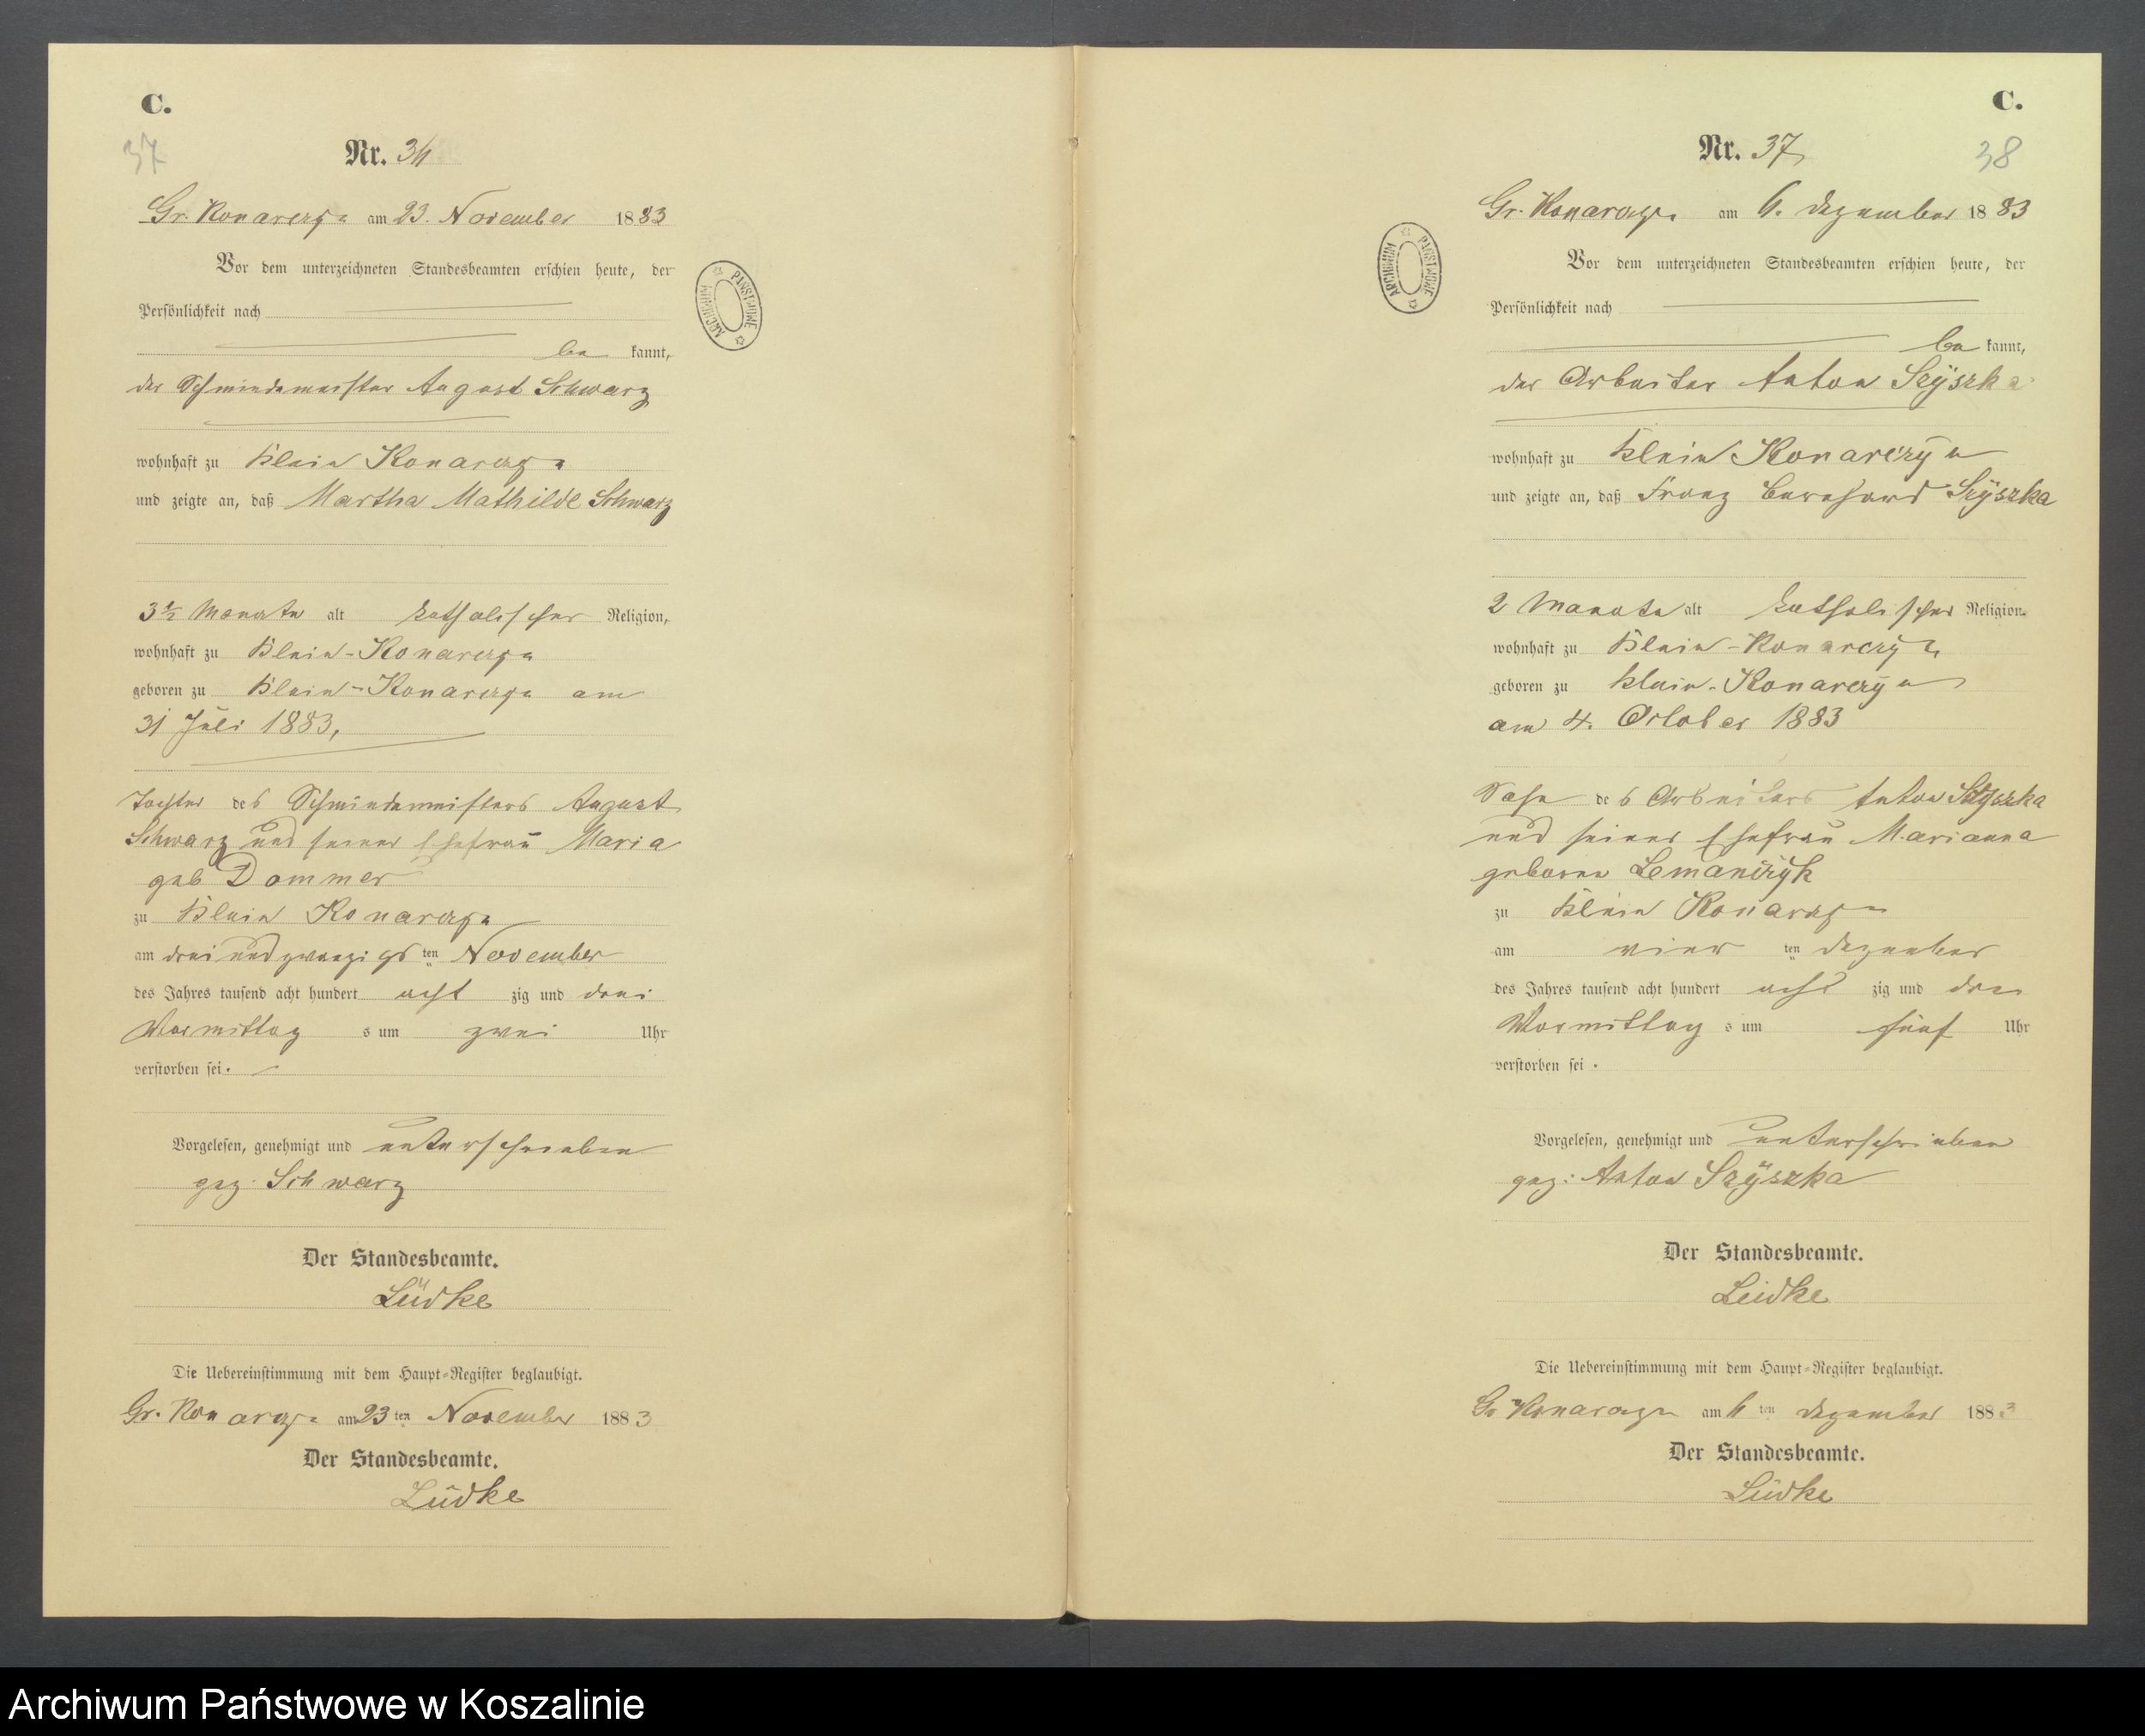 C.
37
Nr. 36
Gr. Konarczyn am 23. November 1883
Vor dem unterzeichneten Standesbeamten erschien heute, der
Persönlichkeit nach
be kannt,
der Schmiedemeister August Schwarz
wohnhaft zu Klein Konarczyn
und zeigte an, daß Martha Mathilde Schwarz
3½ Monate alt katholischer Religion,
wohnhaft zu Klein-Konarczyn
geboren zu Klein-Konarczyn am
31 Juli 1883,
Tochter des Schmiedemeisters August
Schwarz und seiner Ehefrau Maria
geb Dommer
zu Klein Konarczyn
am drei und zwanzigsten November
des Jahres tausend acht hundert acht zig und drei
Vormittag s um zwei Uhr
verstorben sei.
Vorgelesen, genehmigt und unterschrieben
gez. Schwarz
Der Standesbeamte.
Lüdke
Die Uebereinstimmung mit dem Haupt-Register beglaubigt.
Gr. Konarczyn am 23 ten November 1883
Der Standesbeamte.
Lüdke
ARCHIWUM PAŃSTWOWE
C.
38
Nr. 37
Gr. Konarczyn am 6. Dezember 1883
Vor dem unterzeichneten Standesbeamten erschien heute, der
Persönlichkeit nach
be kannt,
der Arbeiter Anton Szÿszka
wohnhaft zu Klein Konarczÿn
und zeigte an, daß Franz Bernhard Szÿszka
2 Monate alt katholischer Religion.
wohnhaft zu Klein-Konarczÿn
geboren zu Klein-Konarczÿn
am 4. October 1883
Sohn des Arbeiters Anton Szÿszka
und seiner Ehefrau Marianna
geboren Lemańczÿk
zu Klein Konarczyn
am vier ten Dezember
des Jahres tausend acht hundert acht zig und drei
Vormittag s um fünf Uhr
verstorben sei.
Vorgelesen, genehmigt und unterschrieben
gez: Anton Szÿszka
Der Standesbeamte.
Lüdke
Die Uebereinstimmung mit dem Haupt-Register beglaubigt.
Gr Konarczyn am 6 ten Dezember 1883
Der Standesbeamte.
Lüdke
ARCHIWUM PAŃSTWOWE
Archiwum Państwowe w Koszalinie